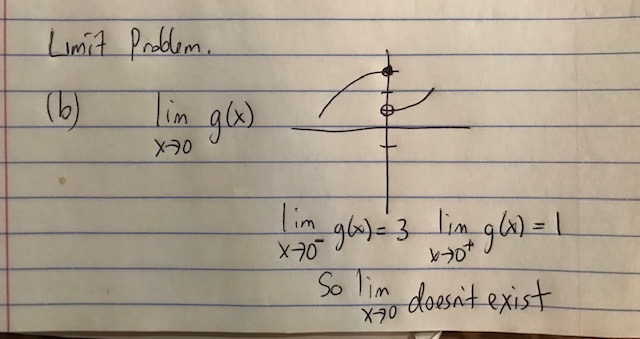 Limit Problem.
(b) lim x→0 g(x)
lim x→0⁻ g(x) = 3 lim x→0⁺ g(x) = 1
So lim x→0 doesn't exist